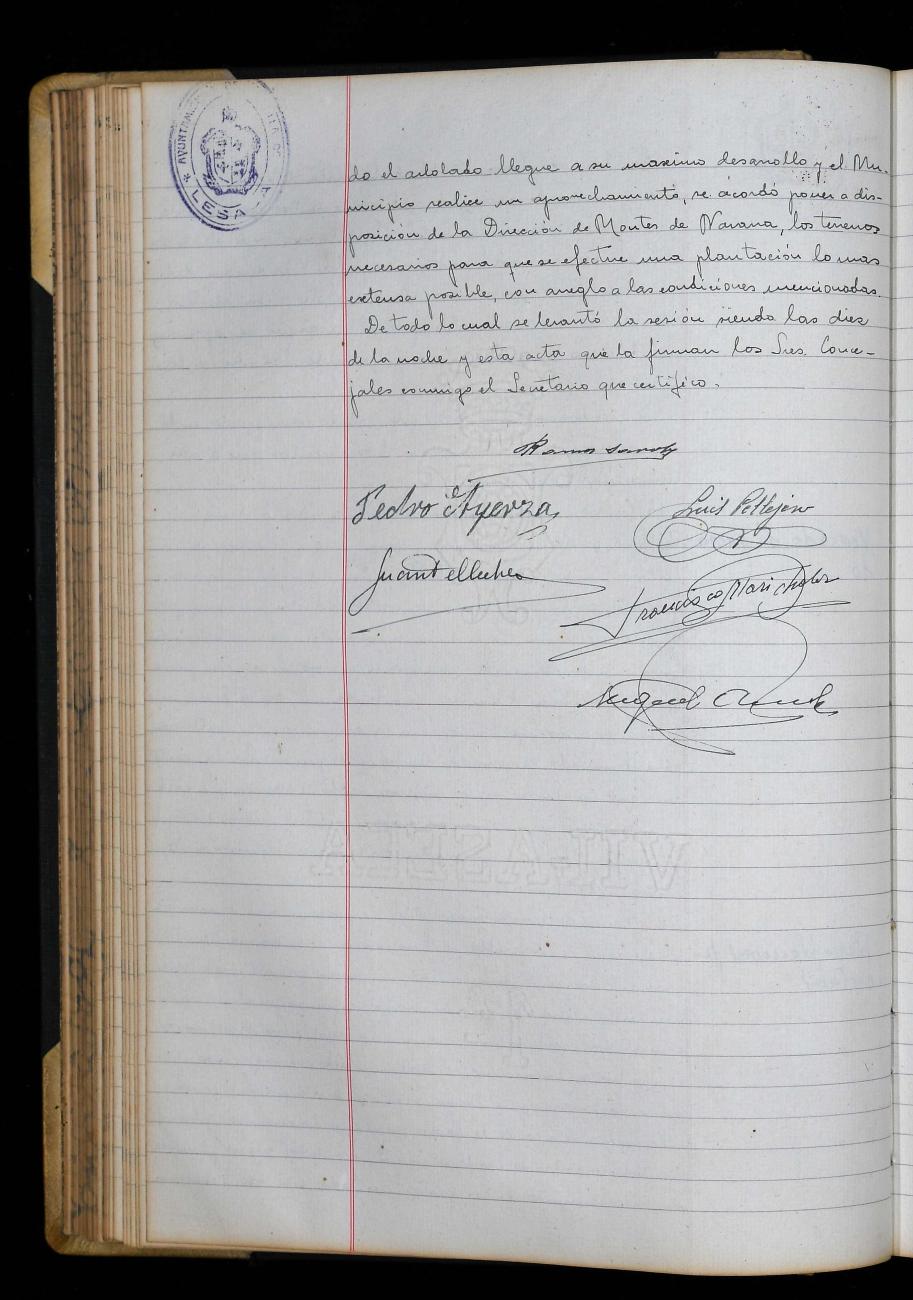 AYUNTAMIEN
LESA
do el arbolado llegue a su maximo desarrollo y el Mu-
nicipio realice un aprovechamiento, se acordó poner a dis-
posición de la Dirección de Montes de Navarra, los terrenos
necesarios para que se efectue una plantación lo mas
extensa posible, con arreglo a las condiciones mencionadas.
De todo lo cual se levantó la sesión siendo las diez
de la noche y esta acta que la firman los Sres. Conce-
jales conmigo el Secretario que certifico.
Ramos
Pedro Ayerza
Luis Pellejero
Juan
Francisco Mari
Miguel